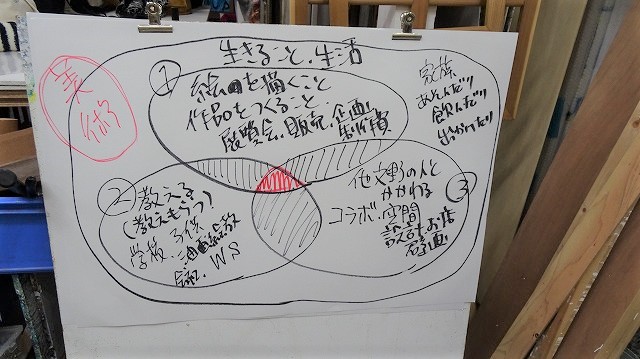 生きること、生活
美術
①
絵画を描くこと
作品をつくること
展覧会、販売、企画、
家族
あそんだり
飲んだり
出かけたり
②
教える
(教えもらう)
学校
子供
油絵
WS
③
他文野の人と
かかわる
コラボ、空間
設計、お店